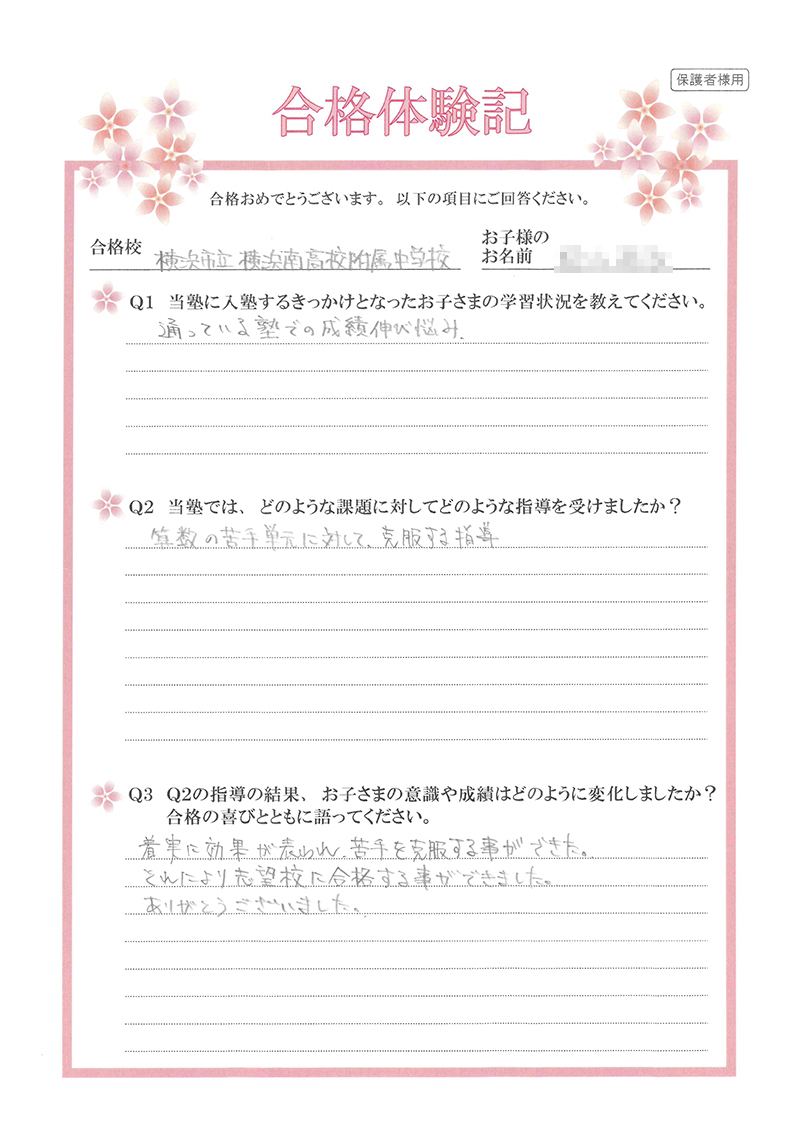 保護者様用
合格体験記
合格おめでとうございます。以下の項目にご回答ください。
合格校 横浜市立 横浜南高校附属中学校
お子様の
お名前
Q1 当塾に入塾するきっかけとなったお子さまの学習状況を教えてください。
通っている塾での成績伸び悩み.
Q2 当塾では、どのような課題に対してどのような指導を受けましたか？
算数の苦手単元に対して、克服する指導
Q3 Q2の指導の結果、お子さまの意識や成績はどのように変化しましたか？
合格の喜びとともに語ってください。
着実に効果が表われ、苦手を克服する事ができた。
それにより志望校に合格する事ができました。
ありがとうございました。